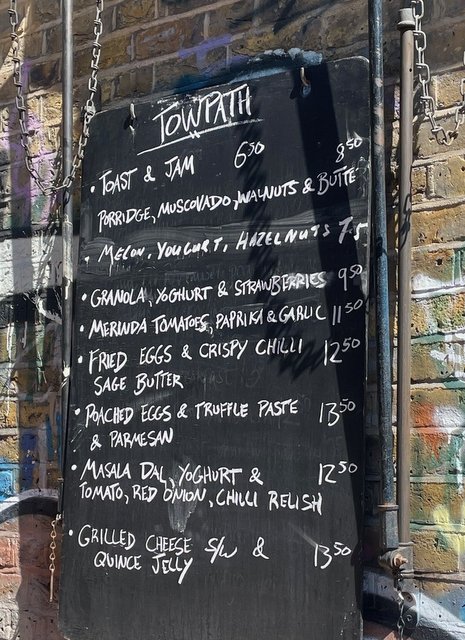 TOWPATH
• TOAST & JAM 6.50
8.50
PORRIDGE, MUSCOVADO, WALNUTS & BUTTE
• MELON, YOUGURT, HAZELNUTS 7.5
• GRANOLA, YOGHURT & STRAWBERRIES 9.50
• MERINDA TOMATOES, PAPRIKA & GARLIC 11.50
• FRIED EGGS & CRISPY CHILLI 12.50
SAGE BUTTER
• POACHED EGGS & TRUFFLE PASTE 13.50
& PARMESAN
• MASALA DAL, YOGHURT & 12.50
TOMATO, RED ONION, CHILLI RELISH
• GRILLED CHEESE S/W & 13.50
QUINCE JELLY